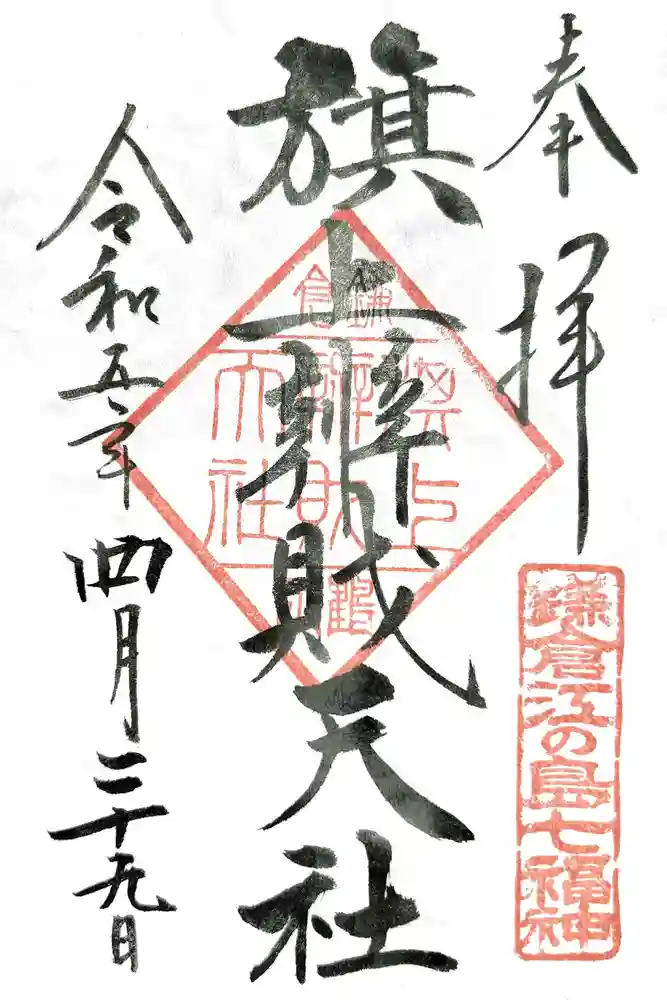 奉拝
鎌倉江の島七福神
旗上辨財天社
鎌倉
旗上
辨財
天社
鶴
令和五年四月二十九日